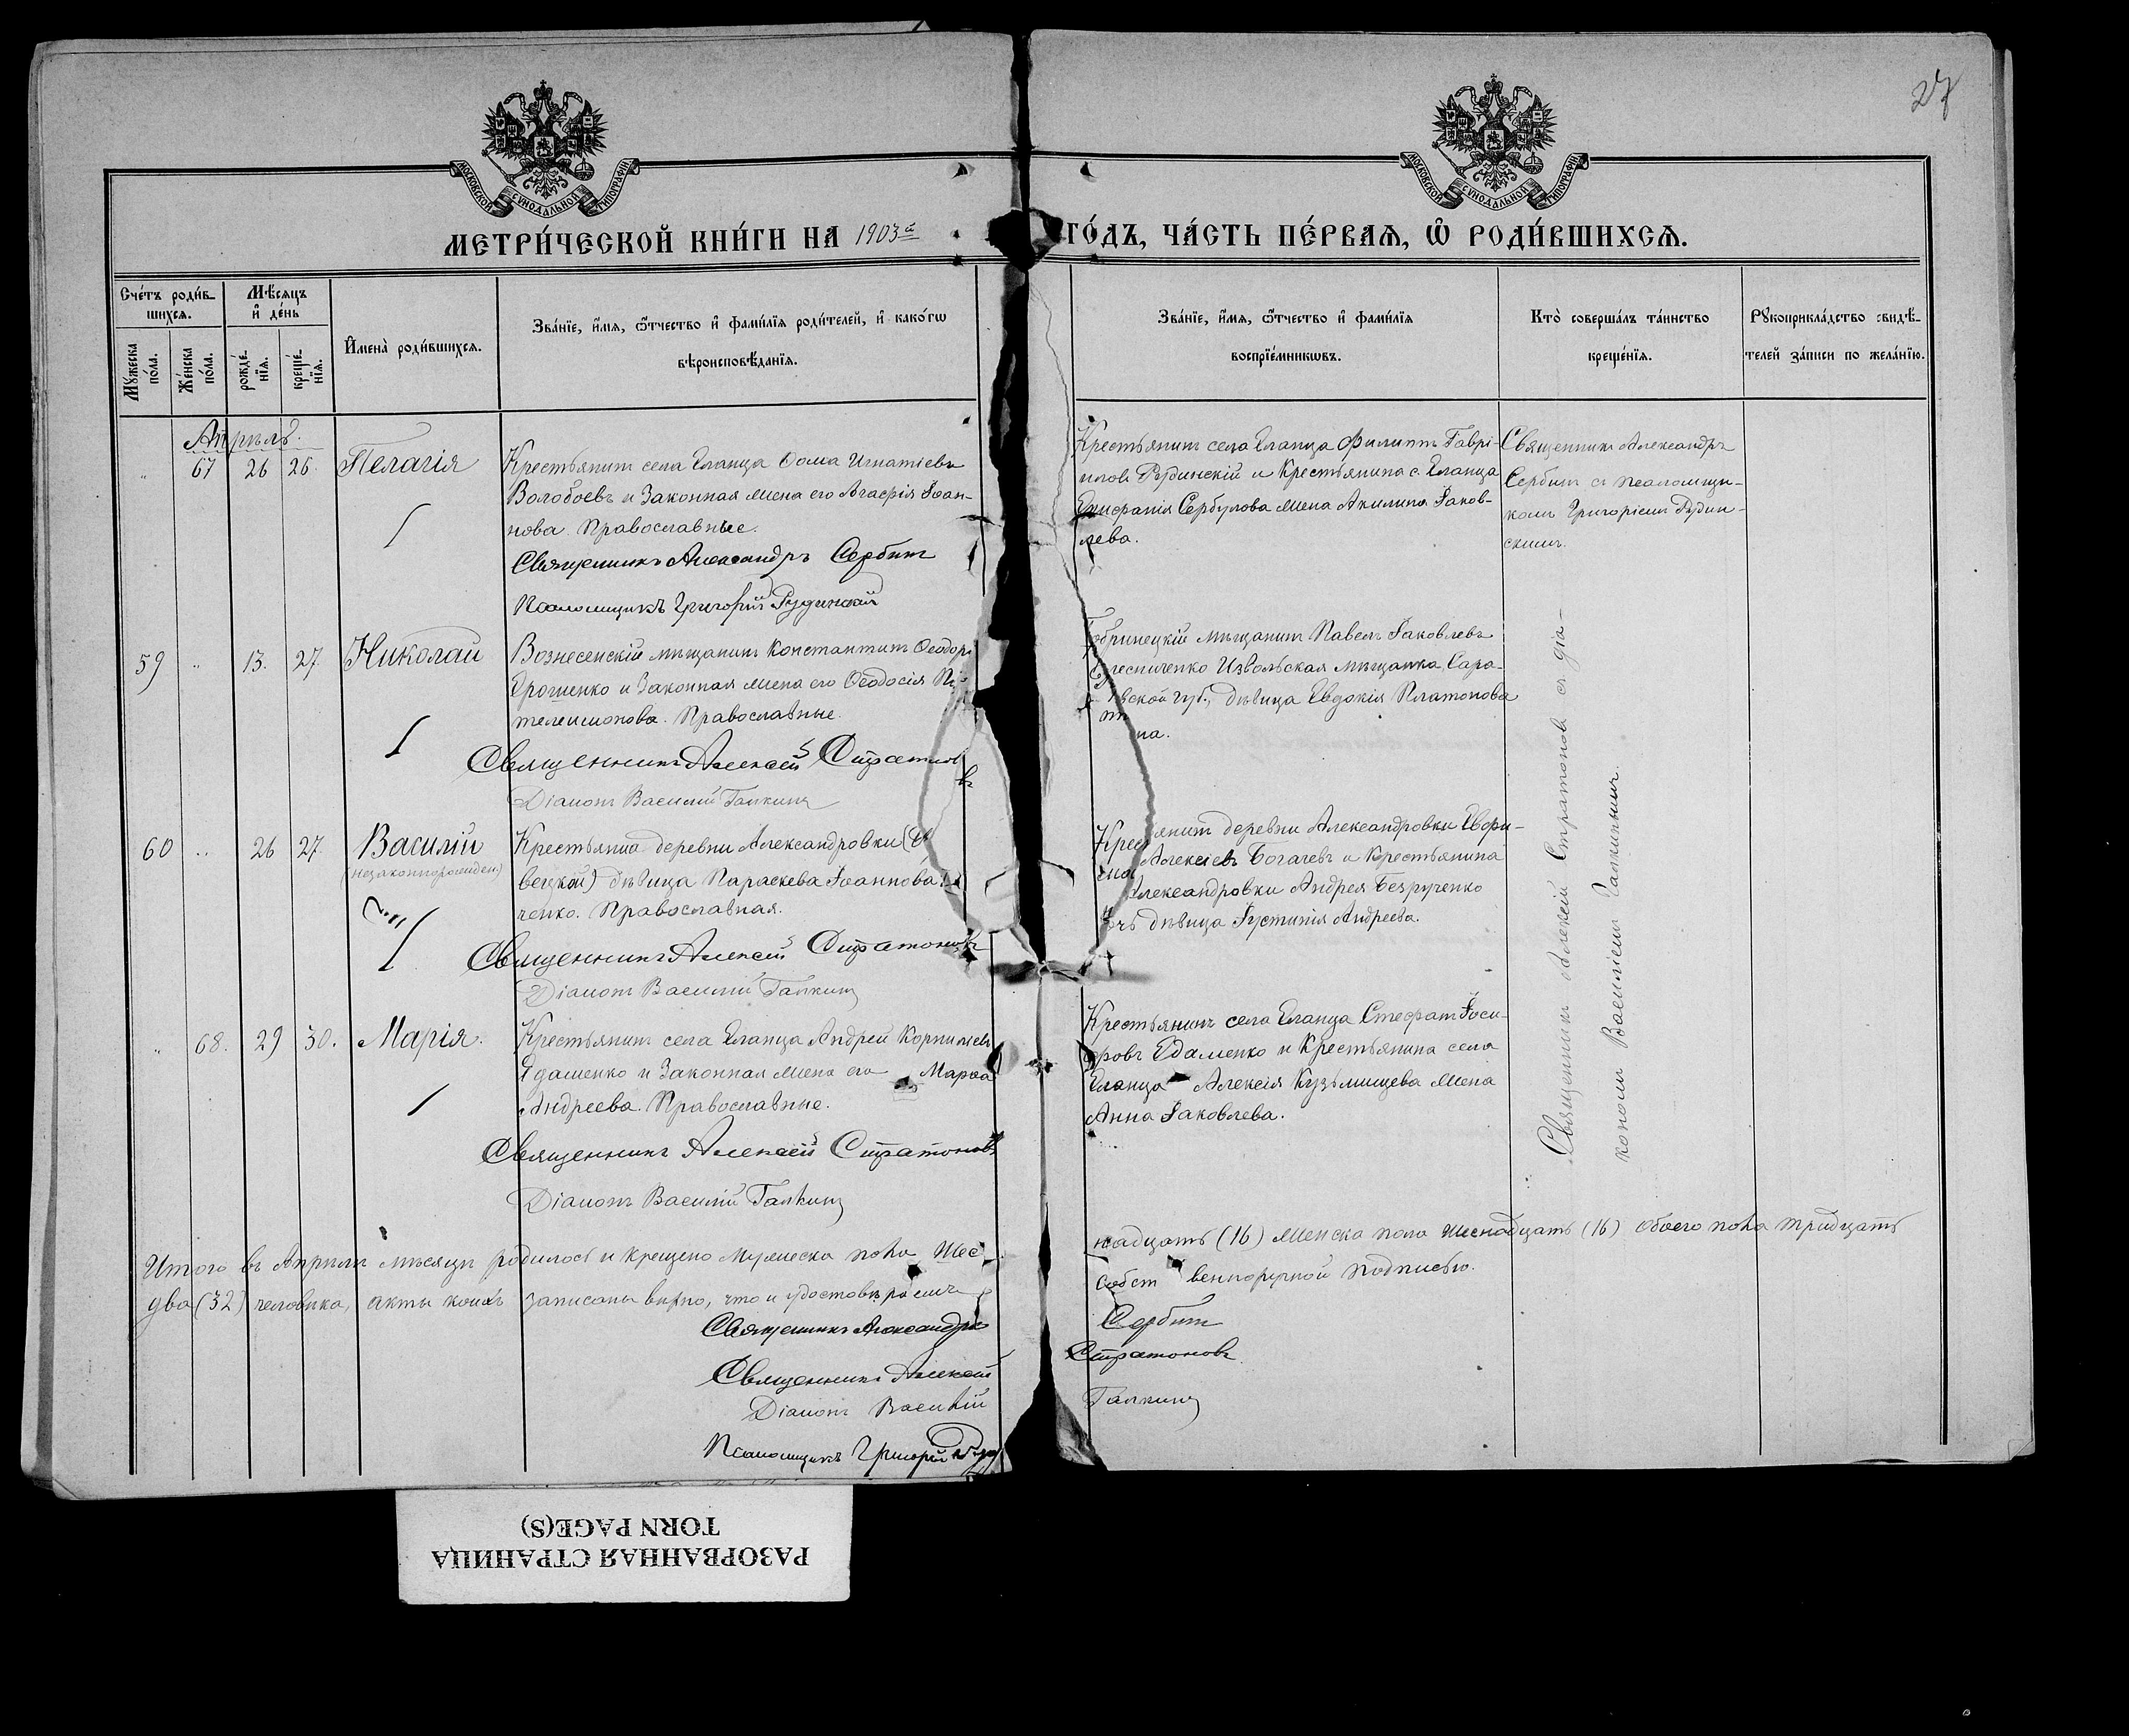 27
МОСКОВСКОЙ СѴНОДАЛЬНОЙ ТИПОГРАФІИ
МОСКОВСКОЙ СѴНОДАЛЬНОЙ ТИПОГРАФІИ
МЕТРИ́ЧЕСКОЙ КНИ́ГИ НА 1903й
ГО́ДЪ, ЧА́СТЬ ПЕ́РВАЯ, Ѽ РОДИ́ВШИХСЯ.
Сче́тъ роди́в-
шихся.
Мѣ́сяцъ
и҆ де́нь
Мꙋ́жеска
по́ла.
Же́нска
по́ла.
рожде́-
нїя.
креще́-
нїя.
И҆мена̀ роди́вшихся.
Зва́нїе, и҆́мя, ѻ҆́тчество и҆ фами́лїя роди́телей, и҆ како́гѡ
вѣроисповѣ́данїя.
Зва́нїе, и҆́мя, ѻ҆́тчество и҆ фами́лїя
воспрїе́мникѡвъ.
Кто̀ соверша́лъ та́инство
креще́нїя.
Рꙋкоприкла́дство свидѣ́-
телей за́писи по жела́нїю.
Апрѣль.
" 67 26 26. Пелагія
Крестьянинъ села Еланца Ѳома Игнатіевъ
Волобоевъ и законная жена его Агафія Іоан-
нова. Православные.
Священникъ Александръ Сербинъ
Псаломщикъ Григорій Рудинскій
Крестьянинъ села Еланца Филиппъ Гаврі-
иловъ Рудинскій и Крестьянина с. Еланца
Епифанія Сербулова жена Акилина Іаков-
лева.
Священникъ Александръ
Сербинъ съ псаломщи-
комъ Григоріемъ Рудин-
скимъ.
59 " 13. 27. Николай
Вознесенскій мѣщанинъ Константинъ Ѳеодоро
Ерошенко и законная жена его Ѳеодосія
телеимонова. Православные.
Священникъ Алексѣй Стратонов
въ
Діаконъ Василій Галкинъ
обринецкій мѣщанинъ Павелъ Іаковлевъ
Извольская мѣщанка, Сара-
вской губ., дѣвица Евдокія Платонова
на.
60 " 26 27. Василій
(незаконнорожден.)
Крестьянка деревни Александровки
вецкой) дѣвица Параскева Іоаннова
ченко. Православная.
Священникъ Алексѣй Стратоновъ
Діаконъ Василій Галкинъ
Крес янинъ деревни Александровки
Алексіевъ Богачевъ и Крестьянина
Александровки Андрея Безрученко
очь дѣвица Іустинія Андреева.
" 68. 29 30. Марія.
Крестьянинъ села Еланца Андрей Корниліевъ
Ядаменко и законная жена его Марѳа
Андреева. Православные.
Священникъ Алексѣй Стратоновъ
Діаконъ Василій Галкинъ
Крестьянинъ села Еланца Стефанъ Іоси-
фовъ Едаменко и Крестьянина села
Еланца Алексія Кузьмищева жена
Анна Іаковлева.
Священникъ Алексій Стратоновъ съ діа-
кономъ Василіемъ Галкинымъ.
Итого въ Апрѣлѣ мѣсяцѣ родилось и крещено мужеска пола Шес-
надцать (16) женска пола шеснадцать (16) обоего пола тридцать
два (32) человѣка, акты коихъ записаны вѣрно, что и удостовѣряемъ
собст венноручной подписью.
Священникъ Александръ Сербинъ
Священникъ Алексѣй Стратоновъ
Діаконъ Василій Галкинъ
Псаломщикъ Григорій Руд
РАЗОРВАННАЯ СТРАНИЦА
TORN PAGE(S)